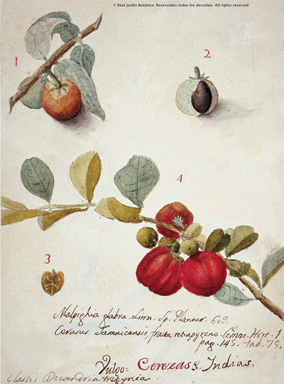 © Real Jardín Botánico. Reservados todos los derechos. All rights reserved
1
2
4
3
Malpighia glabra. Linn. Sp. Plantar. 609
Cerasus Jamaicensis, fructu tetrapyreno.
pag. 145. tab. 75.
Vulgo= Cerezas. Indias.
Classis Decandria Trigynia.